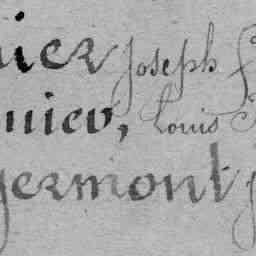 nier Joseph
nier, Louis
germont